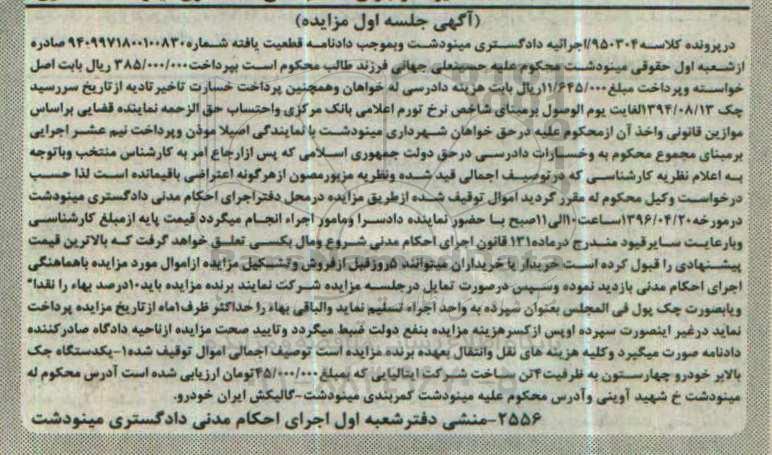 (آگهی جلسه اول مزایده)
درپرونده کلاسه۹۵۰۳۰۴/اجرائیه دادگستری مینودشت وبموجب دادنامه قطعیت یافته شماره۹۴۰۹۹۷۱۸۰۰۱۰۰۸۳۰ صادره
ازشعبه اول حقوقی مینودشت محکوم علیه حسینعلی جهانی فرزند طالب محکوم است بپرداخت۳۸۵/۰۰۰/۰۰۰ ریال بابت اصل
خواسته وپرداخت مبلغ۱۱/۶۴۵/۰۰۰ریال بابت هزینه دادرسی له خواهان وهمچنین پرداخت خسارت تاخیرتادیه ازتاریخ سررسید
چک ۱۳۹۴/۰۸/۱۳لغایت یوم الوصول برمبنای شاخص نرخ تورم اعلامی بانک مرکزی واحتساب حق الزحمه نماینده قضایی براساس
موازین قانونی واخذ آن ازمحکوم علیه درحق خواهان شهرداری مینودشت با نمایندگی اصیلا موذن وپرداخت نیم عشر اجرایی
برمبنای مجموع محکوم به وخسارات دادرسی درحق دولت جمهوری اسلامی که پس ازارجاع امر به کارشناس منتخب وباتوجه
به اعلام نظریه کارشناسی که درتوصیف اجمالی قید شده ونظریه مزبورمصون ازهرگونه اعتراضی باقیمانده است لذا حسب
درخواست وکیل محکوم له مقرر گردید اموال توقیف شده ازطریق مزایده درمحل دفتراجرای احکام مدنی دادگستری مینودشت
درمورخه ۱۳۹۶/۰۴/۲۰ساعت۱۰الی۱۱صبح با حضور نماینده دادسرا ومامور اجراء انجام میگردد قیمت پایه ازمبلغ کارشناسی
وبارعایت سایرقیود مندرج درماده۱۳۱ قانون اجرای احکام مدنی شروع ومال بکسی تعلق خواهد گرفت که بالاترین قیمت
پیشنهادی را قبول کرده است خریدار یا خریداران میتوانند ۵روزقبل ازفروش وتشکیل مزایده ازاموال مورد مزایده باهماهنگی
اجرای احکام مدنی بازدید نموده وسپس درصورت تمایل درجلسه مزایده شرکت نمایند برنده مزایده باید۱۰درصد بهاء را نقداً
ویابصورت چک پول فی المجلس بعنوان سپرده به واحد اجراء تسلیم نماید والباقی بهاء را حداکثر ظرف۱ماه ازتاریخ مزایده پرداخت
نماید درغیر اینصورت سپرده اوپس ازکسرهزینه مزایده بنفع دولت ضبط میگردد وتایید صحت مزایده ازناحیه دادگاه صادرکننده
دادنامه صورت میگیرد وکلیه هزینه های نقل وانتقال بعهده برنده مزایده است توصیف اجمالی اموال توقیف شده۱-یکدستگاه جک
بالابر خودرو چهارستون به ظرفیت۴تن ساخت شرکت ایتالیایی که بمبلغ۴۵/۰۰۰/۰۰۰تومان ارزیابی شده است آدرس محکوم له
مینودشت خ شهید آوینی وآدرس محکوم علیه مینودشت کمربندی مینودشت-گالیکش ایران خودرو.
۲۵۵۶-منشی دفترشعبه اول اجرای احکام مدنی دادگستری مینودشت